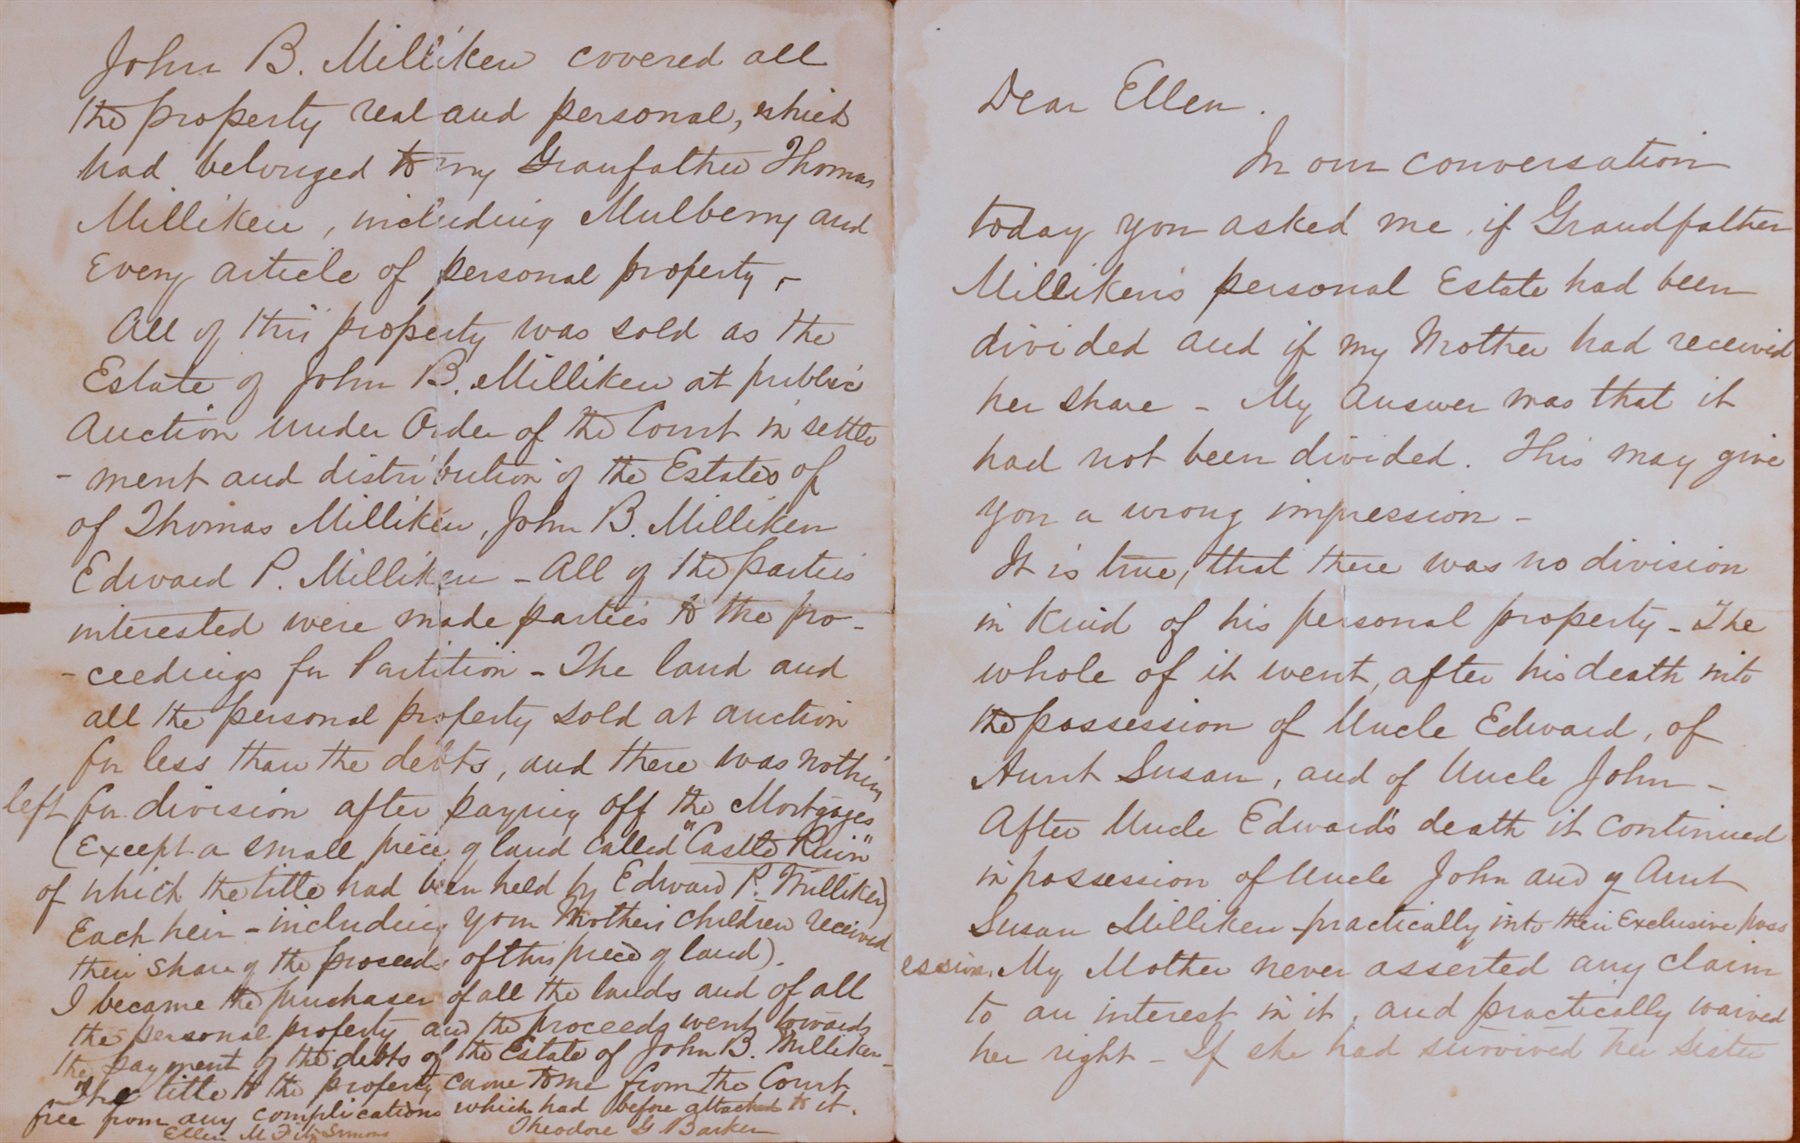 Dear Ellen.
In our conversation
today you asked me, if Grandfather
Milliken's personal Estate had been
divided and if my Mother had received
her share - My answer was that it
had not been divided. This may give
you a wrong impression -
It is true, that there was no division
in kind of his personal property - The
whole of it went, after his death into
the possession of Uncle Edward, of
Aunt Susan, and of Uncle John -
After Uncle Edward's death it continued
in possession of Uncle John and of Aunt
Susan Milliken - practically into their Exclusive poss
ession. My Mother never asserted any claim
to an interest in it, and practically waived
her right - If she had survived her sister
John B. Milliken covered all
the property real and personal, which
had belonged to my Granfather Thomas
Milliken, including Mulberry and
Every article of personal property, -
All of this property was sold as the
Estate of John B. Milliken at public
Auction under Order of the Court in settle
- ment and distribution of the Estates of
of Thomas Milliken, John B. Milliken
Edward P. Milliken - All of the parties
interested were made parties to the pro-
- ceedings for Partition - The land and
all the personal property sold at auction
for less than the debts, and there was nothing
left for division after paying off the Mortgages
(Except a small piece of land called "Castle Ruin"
of which the title had been held by Edward P. Milliken)
Each heir - including your Mother's children received
their share of the proceeds of this piece of land).
I became the purchaser of all the lands and of all
the personal property and the proceeds went towards
the payment of the debts of the Estate of John B. Milliken -
The title to the property came to me from the Court
free from any complications which had before attached to it.
Theodore G Barker
Ellen M FitzSimons